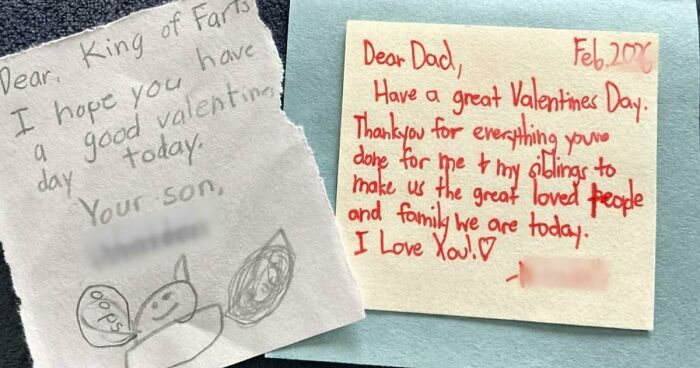 Dear, King of Farts
I hope you have
a good valentines
day today.
Your son,
oops
Dear Dad,
Feb. 2026
Have a great Valentines Day.
Thankyou for everything you've
done for me & my siblings to
make us the great loved people
and family we are today.
I Love You!♡